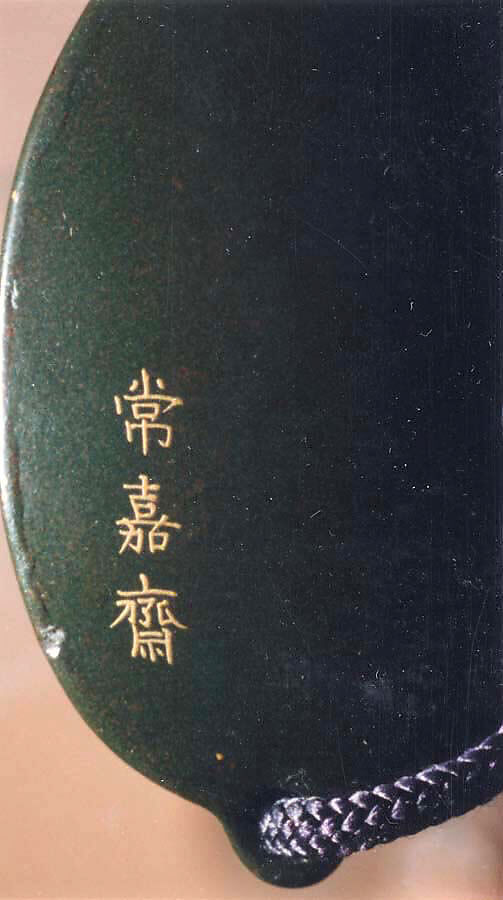 常嘉齋